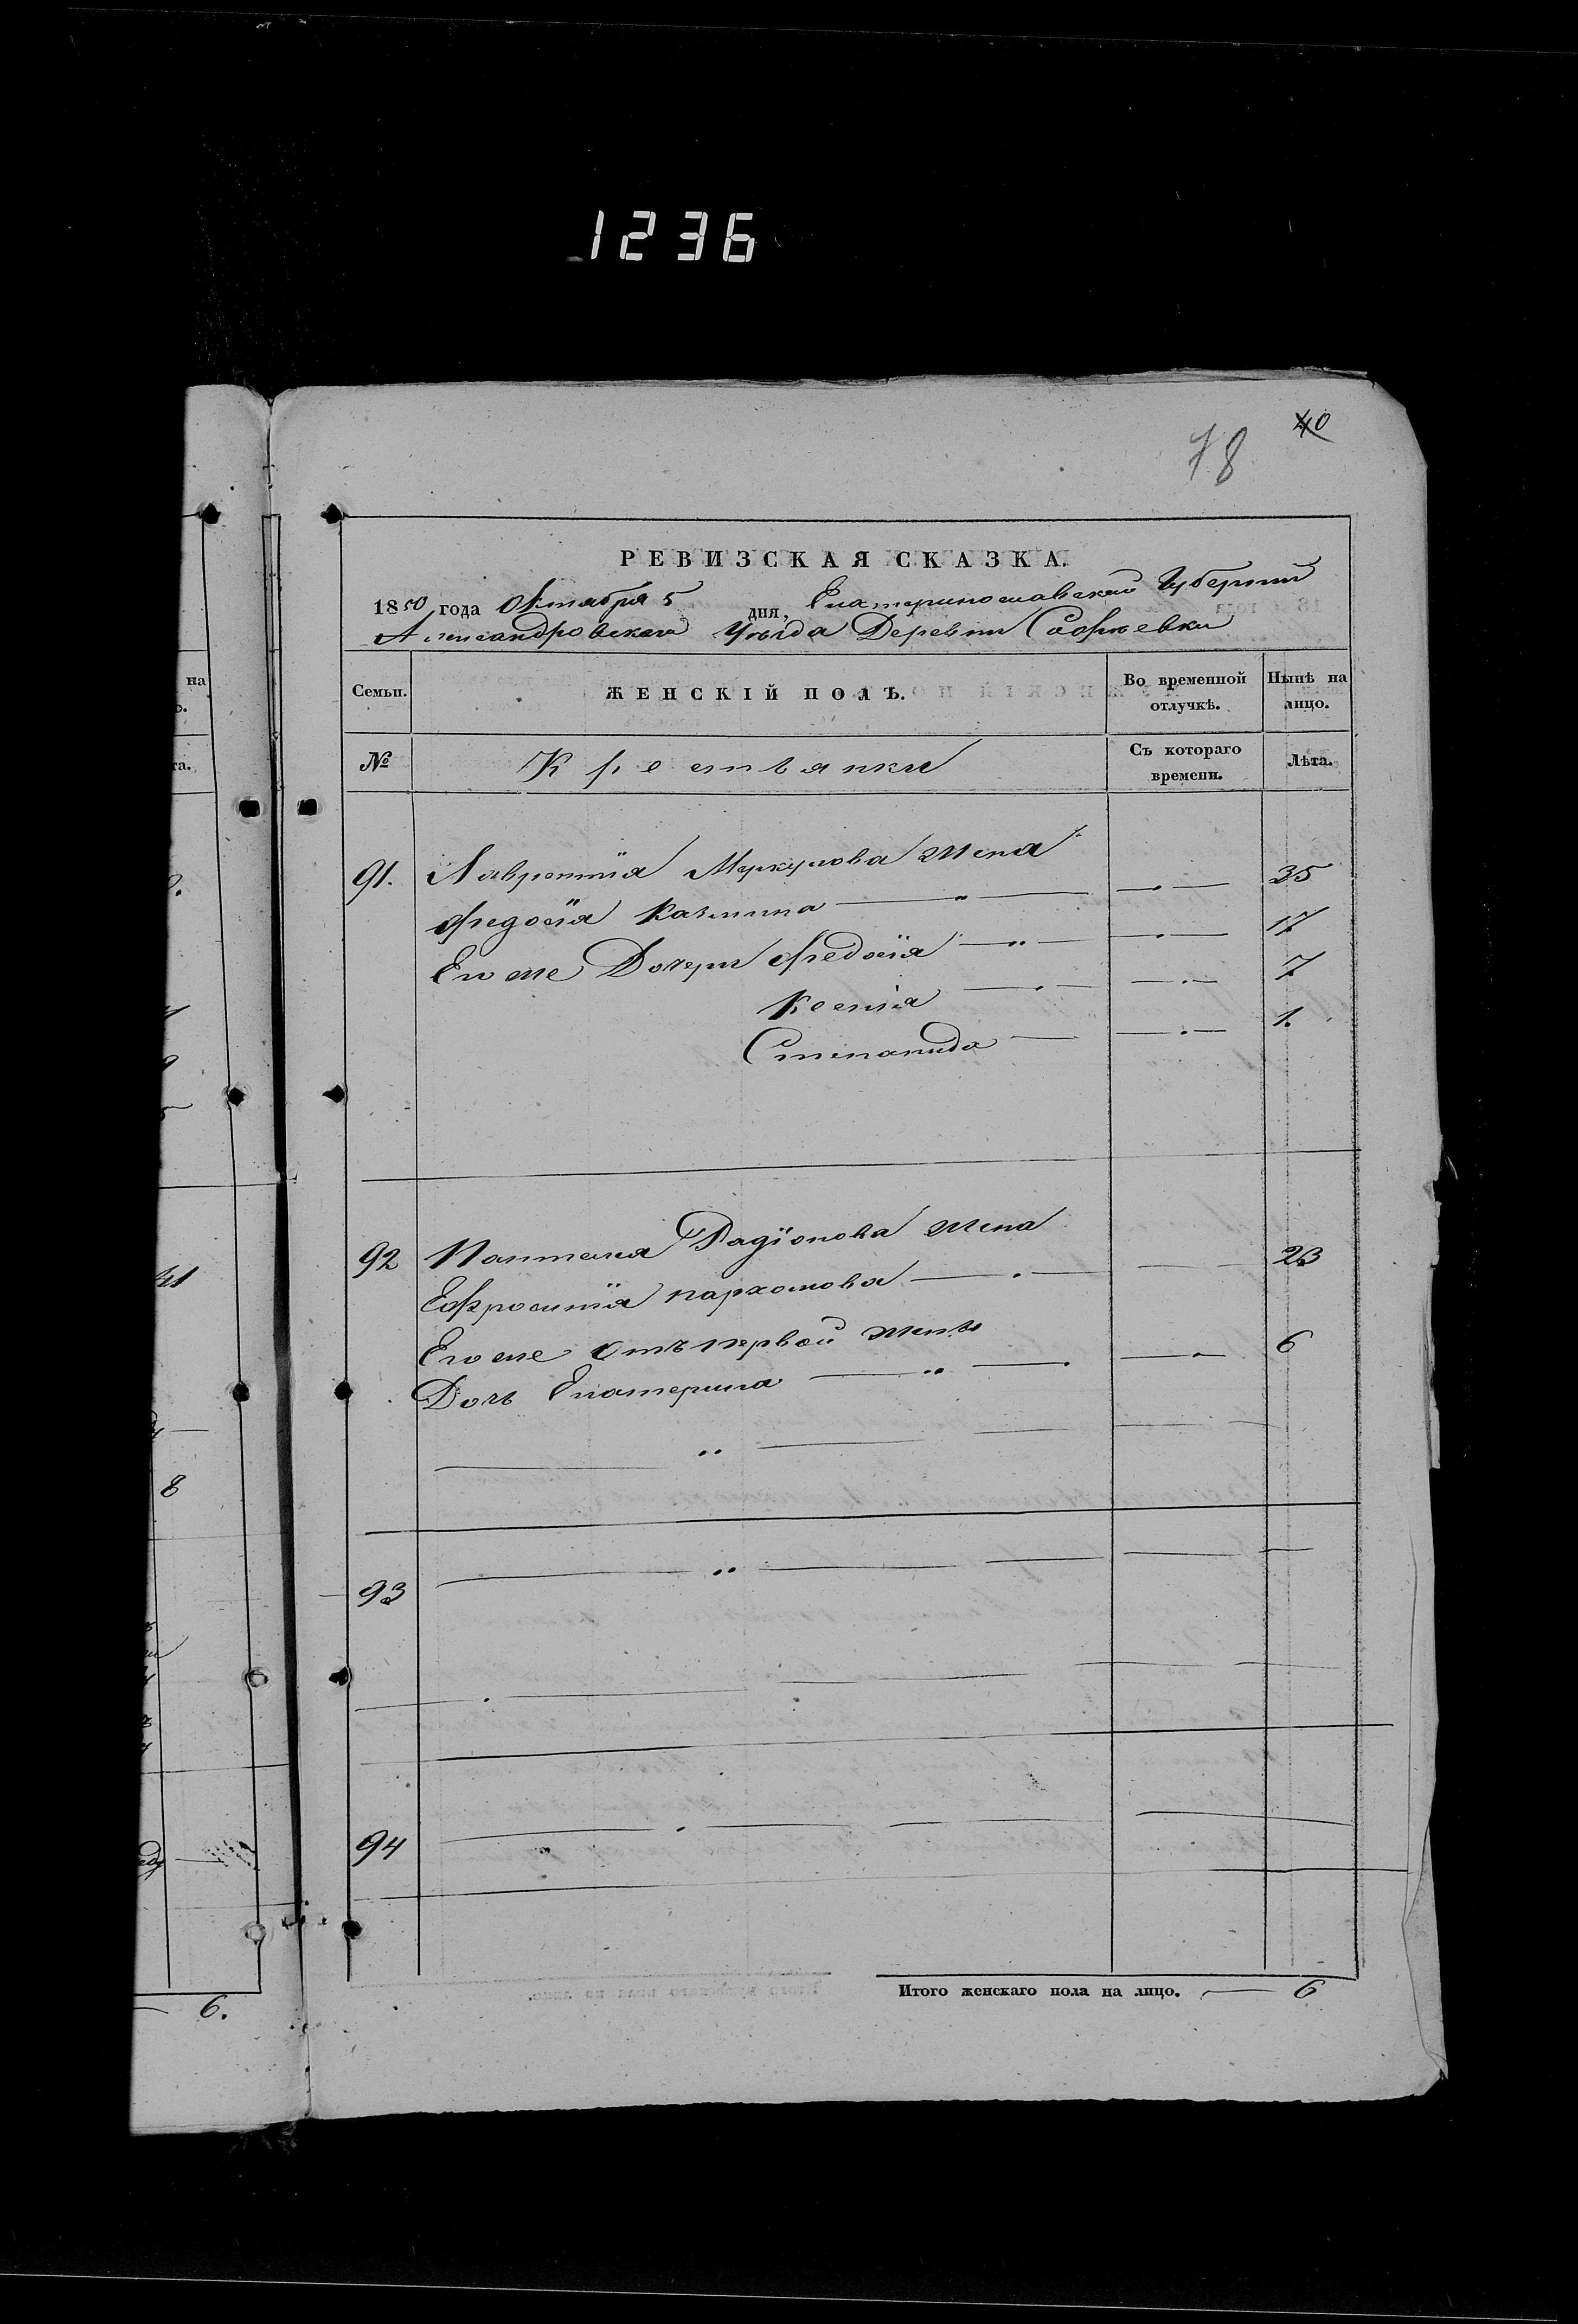 1236
78
40
РЕВИЗСКАЯ СКАЗКА.
1850 года Октября 5 дня, Екатеринославской Губернии
Александровскаго Уѣзда Деревни Софиевки
Семьи. ЖЕНСКІЙ ПОЛЪ. Во временной отлучкѣ. Нынѣ на лицо.
№ Крестьянки Съ котораго времени. Лѣта.
91. Лаврентія Меркулова жена
Федосія Казмина 35
Его же Дочери Федосія 17
Ксенія 7
Степанида 1.
92 Пантелея Радіонова жена
Ефросинія пархомова 23
Его же отъ первой жены
Дочь Екатерина 6
93
94
Итого женскаго пола на лицо. 6
на
та.
41
8
6.